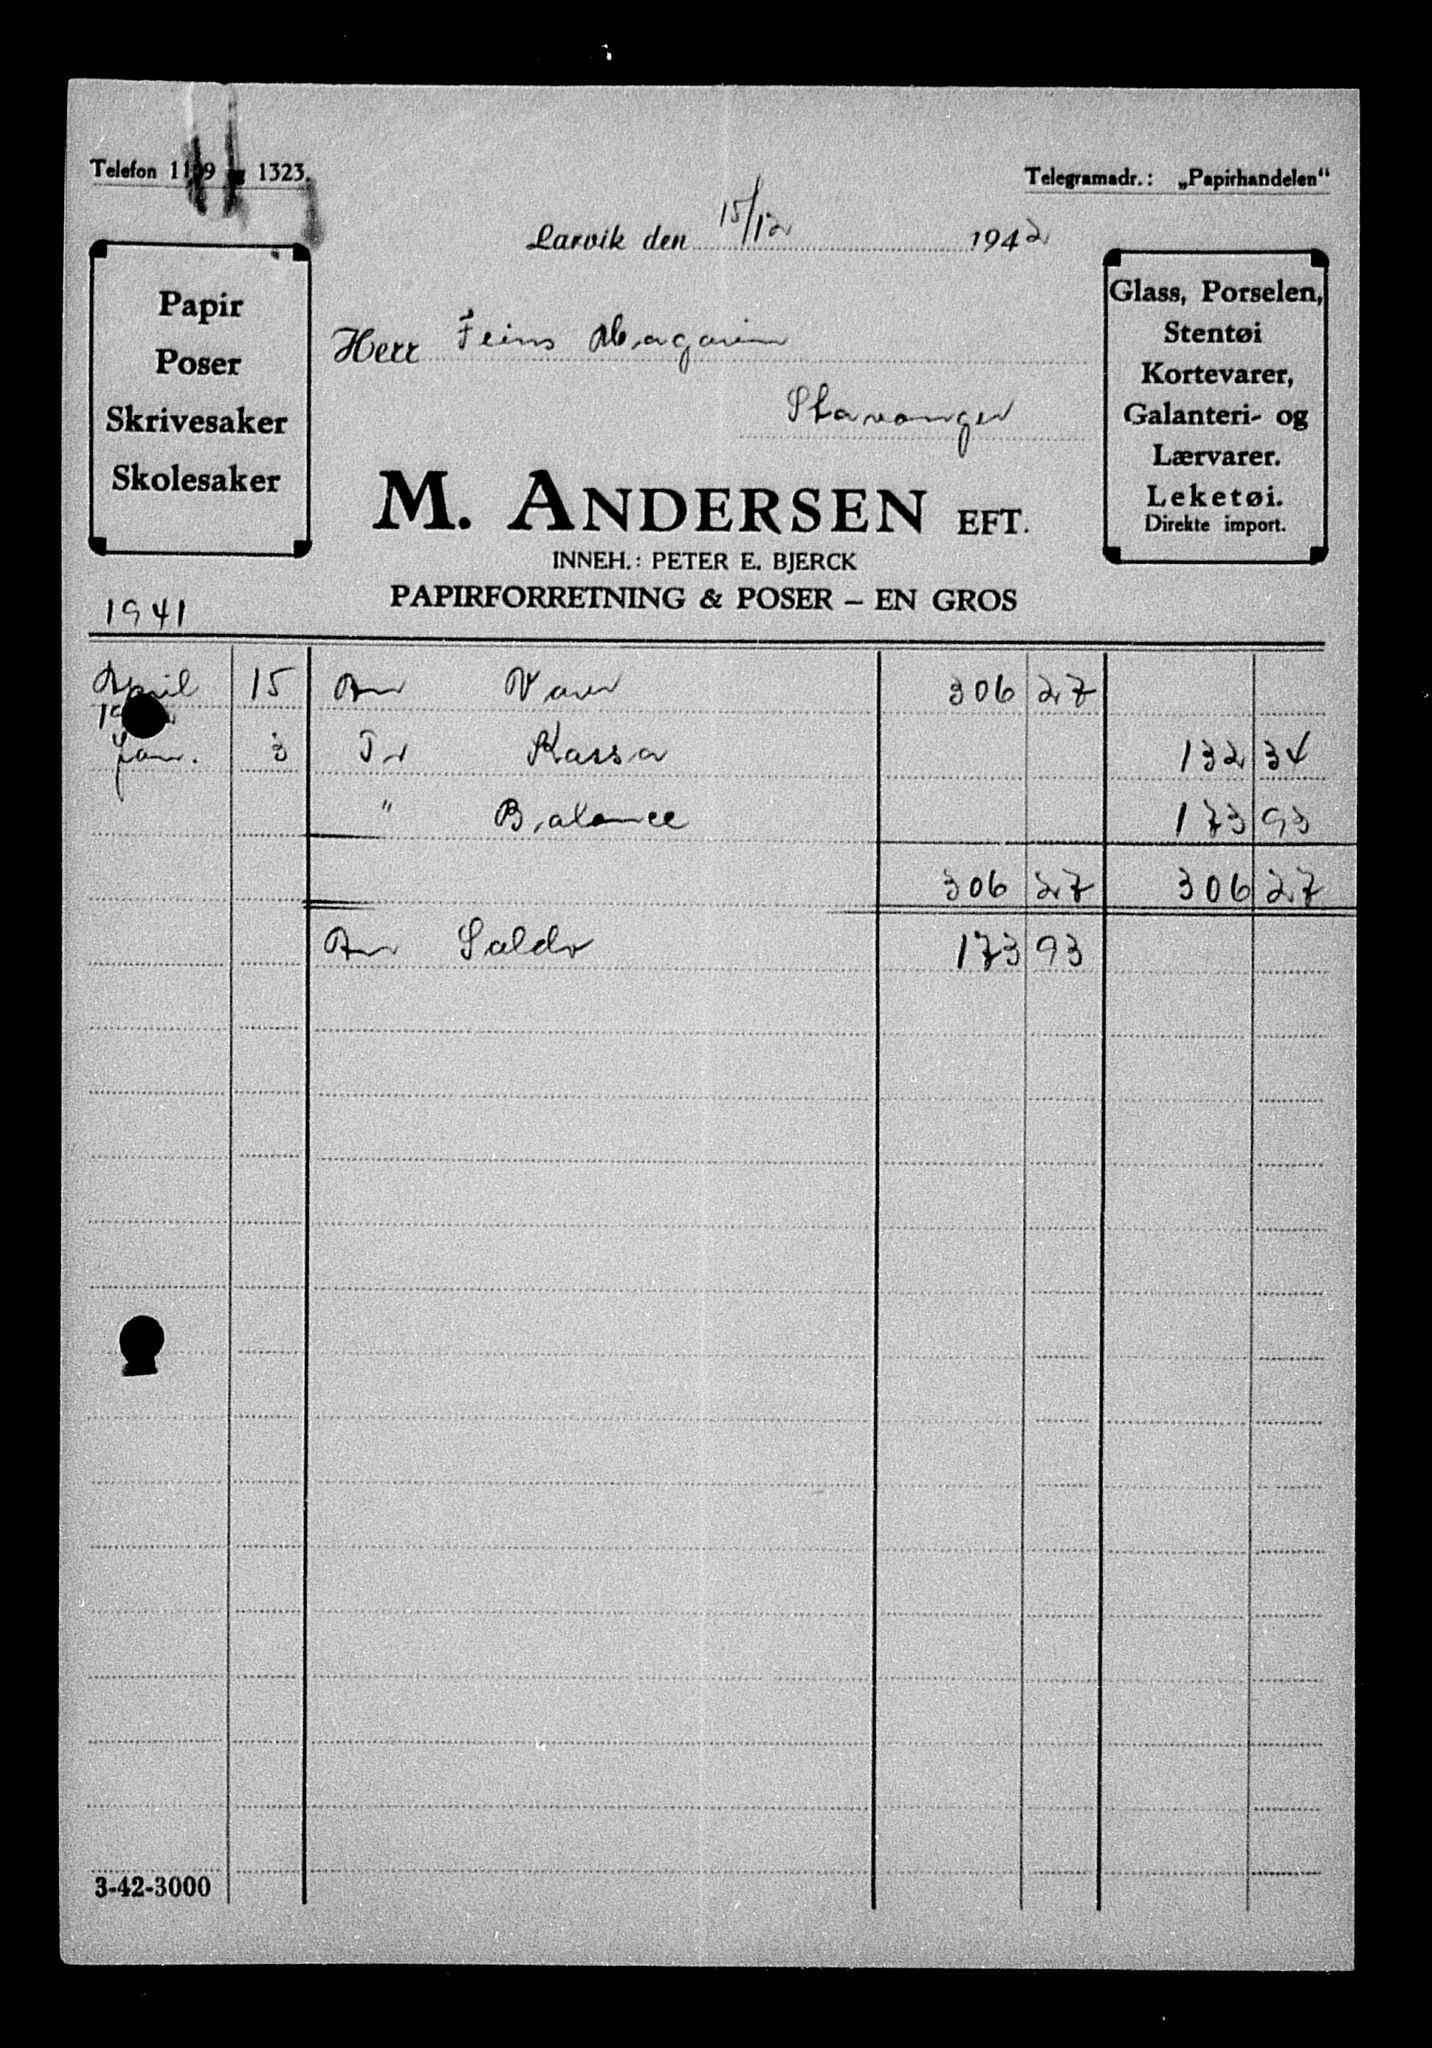 Telefon 1199 og 1323.
Telegramadr.: „Papirhandelen"
Larvik den 15/12 1942
Papir
Poser
Skrivesaker
Skolesaker
Herr Feins Magasin
Stavanger
Glass, Porselen,
Stentøi
Kortevarer,
Galanteri- og
Lærvarer.
Leketøi.
Direkte import.
M. ANDERSEN EFT.
INNEH.: PETER E. BJERCK
PAPIRFORRETNING & POSER – EN GROS
1941
April 15 An Varer 306 27
Jan. 3 Pr Kassa 132 34
" Balance 173 93
306 27 306 27
An Saldo 173 93
3-42-3000